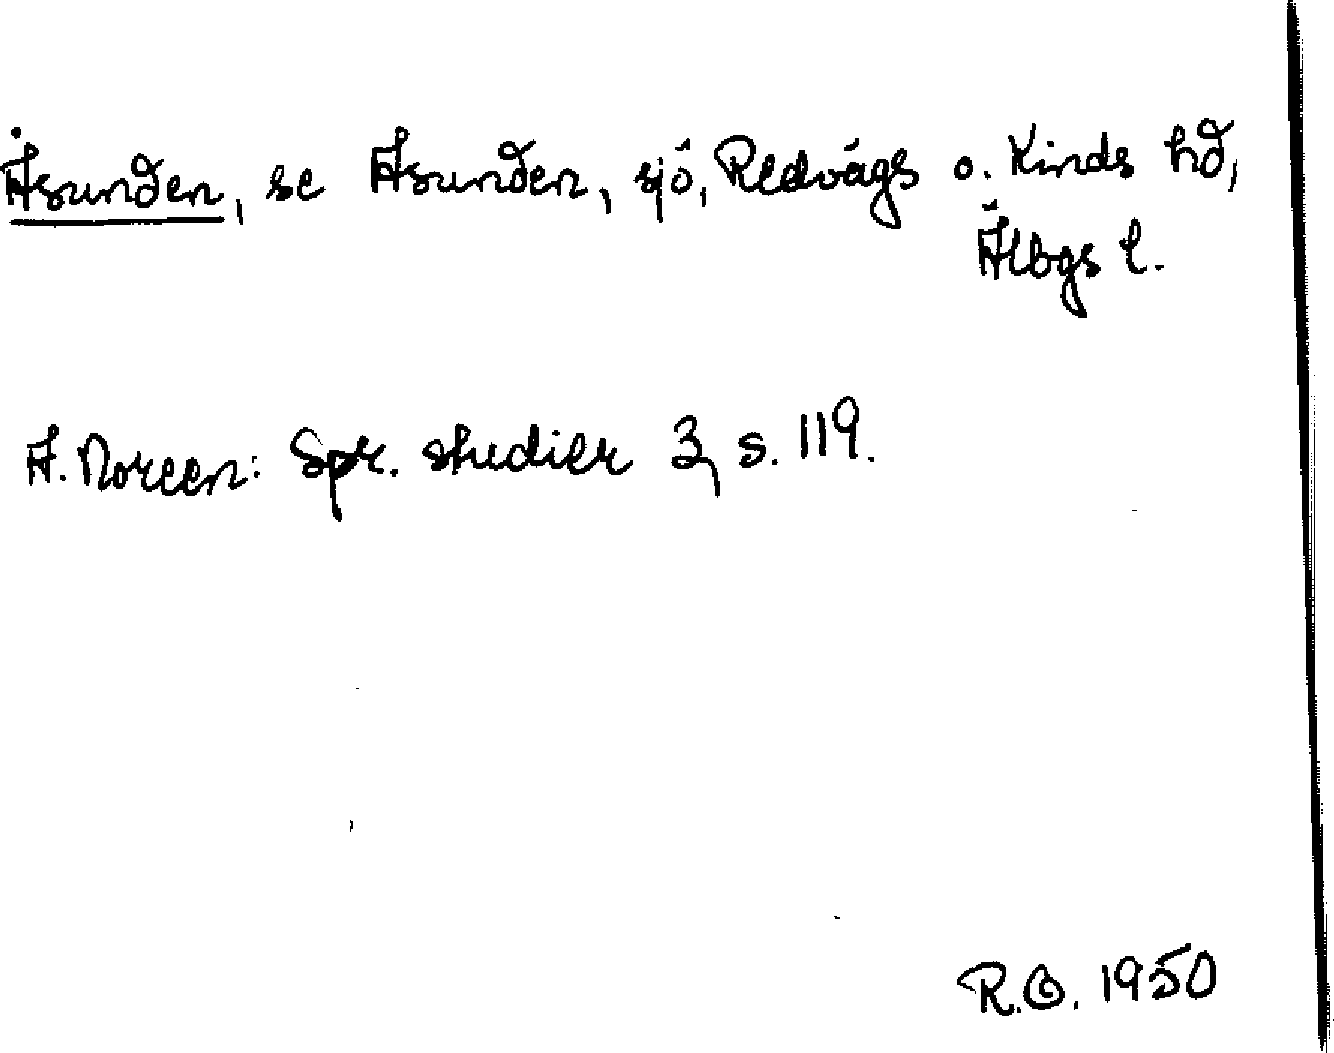 Åsunden, se Asunden, sjö, Redvägs o. Kinds hd,
Älbgs l.
A. Noreen: Spr. studier 3, s. 119.
R.O. 1950